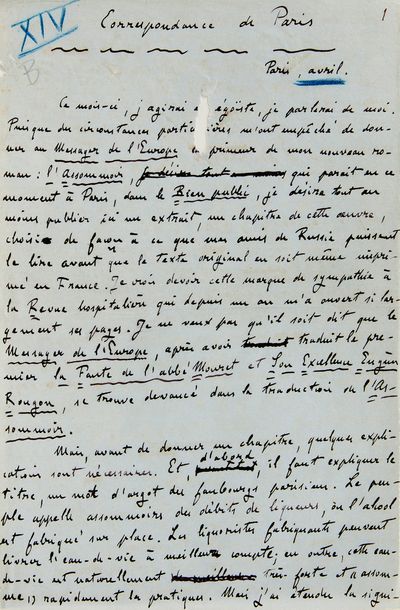 XIV
B
1
Correspondance de Paris
Paris, avril.
Ce mois-ci, j'agirai en égoïste, je parlerai de moi.
Puisque des circonstances particulières m'ont empêché de don-
ner au Messager de l'Europe la primeur de mon nouveau ro-
man : l'Assommoir, qui paraît en ce
moment à Paris, dans le Bien public, je désire tout au
moins publier ici un extrait, un chapitre de cette œuvre,
choisi de façon à ce que mes amis de Russie puissent
le lire avant que le texte original en soit même impri-
mé en France. Je crois devoir cette marque de sympathie à
la Revue hospitalière qui depuis un an m'a ouvert si lar-
gement ses pages. Je ne veux pas qu'il soit dit que le
Messager de l'Europe, après avoir traduit le pre-
mier la Faute de l'abbé Mouret et Son Excellence Eugène
Rougon, se trouve devancé dans la traduction de l'As-
sommoir.
Mais, avant de donner un chapitre, quelques expli-
cations sont nécessaires. Et, d'abord, il faut expliquer le
titre, un mot d'argot des faubourgs parisiens. Le peu-
ple appelle assommoirs des débits de liqueurs, où l'alcool
est fabriqué sur place. Les liquoristes fabriquants peuvent
livrer l'eau-de-vie à meilleur compte; en outre, cette eau-
de-vie est naturellement très forte et assom-
me rapidement les pratiques. Mais j'ai étendu la signi-